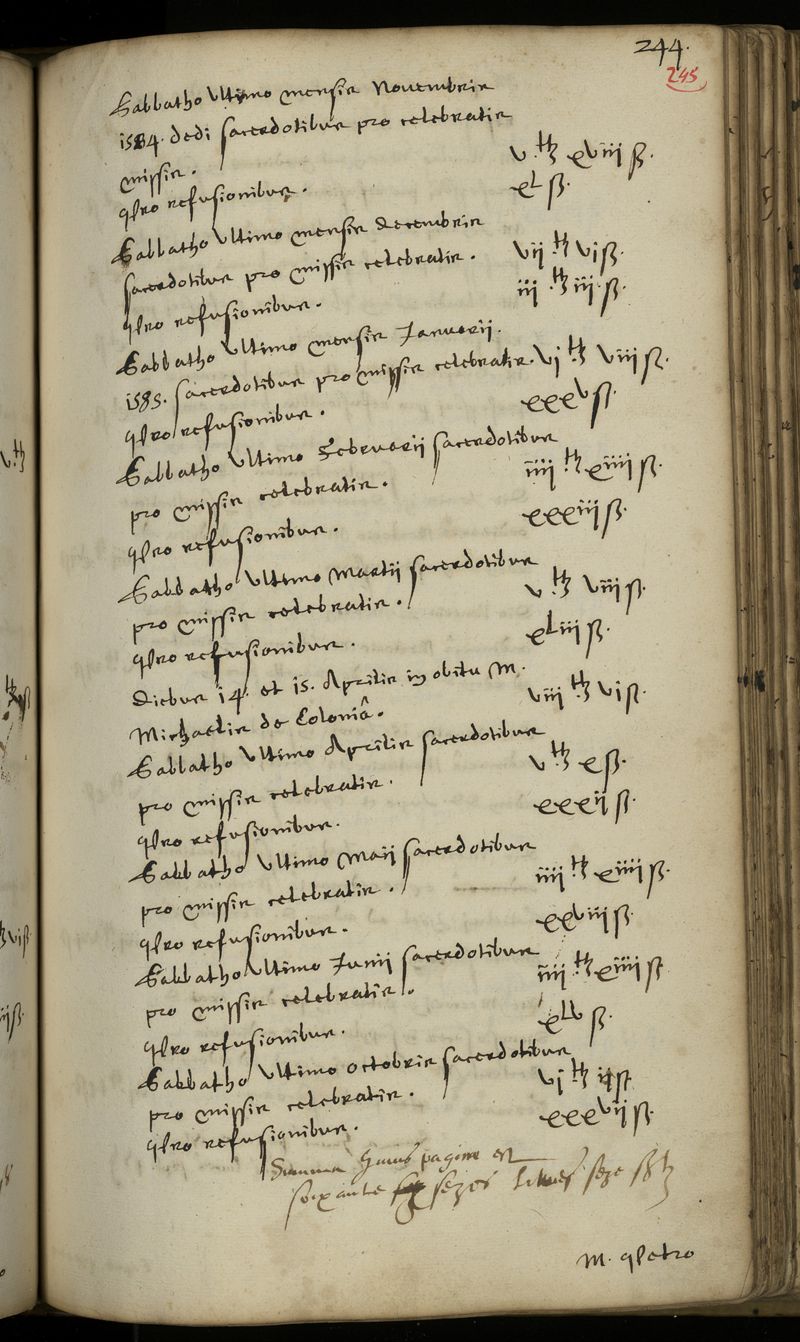 244.
245
Sabbatho ultimo mensis Novembris
1584. dedi sacerdotibus pro celebratis
missis. v lb xviij ß.
Pro refusionibus. xl ß.
Sabbatho ultimo mensis decembris
sacerdotibus pro missis celebratis. vij lb vj ß.
Pro refusionibus. iij lb iij ß.
Sabbatho ultimo mensis Januarij.
1585. sacerdotibus pro missis celebratis. vj lb viij ß.
Pro refusionibus. xxxv ß.
Sabbatho ultimo Februarij sacerdotibus
pro missis celebratis. iiij lb xiiij ß.
Pro refusionibus. xxxiij ß.
Sabbatho ultimo Martij sacerdotibus
pro missis celebratis. v lb viij ß.
Pro refusionibus. xliij ß.
Diebus 14. et 15. Aprilis in obitu M.
Michaelis de Coloniâ. viij lb vj ß.
Sabbatho ultimo Aprilis sacerdotibus
pro missis celebratis. v lb x ß.
Pro refusionibus. xxxij ß.
Sabbatho ultimo Maij sacerdotibus
pro missis celebratis. iiij lb xiiij ß.
Pro refusionibus. xxviij ß.
Sabbatho ultimo Junij sacerdotibus
pro missis celebratis. iiij lb xiiij ß
Pro refusionibus. xlv ß.
Sabbatho ultimo octobris sacerdotibus
pro missis celebratis. vj lb ij ß
Pro refusionibus. xxxvij ß.
Summa huius pagine est
soixante livres
M. Petro